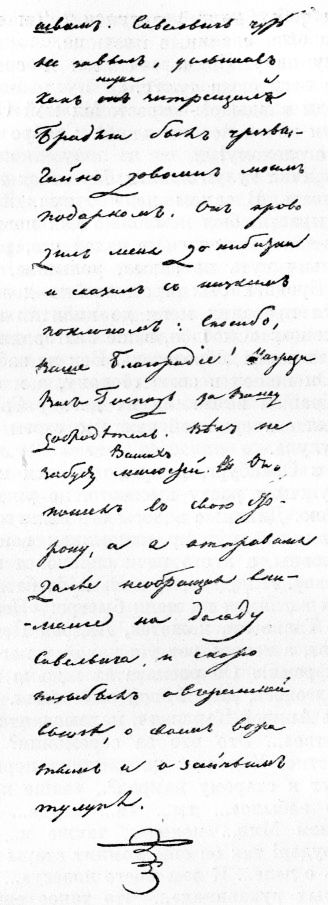 швамъ. Савельичь чуть
не завылъ, услышавъ
нитки
какъ они затрещали
Бродяга былъ чрезвы-
чайно доволенъ моимъ
подаркомъ. Онъ прово
дилъ меня до кибитки
и сказалъ съ низкимъ
поклономъ: Спасибо,
Ваше Благородіе! Награди
Васъ Господь за Вашу
добродѣтель. Вѣкъ не
Вашихъ
забуду милостей. Онъ
пошелъ въ свою сто
рону, а я отправился
далѣе необращая вни-
-манія на досаду
Савельича и скоро
позабылъ о вчерашней
вьюгѣ о своемъ вожа
томъ и о заячьемъ
тулупѣ.